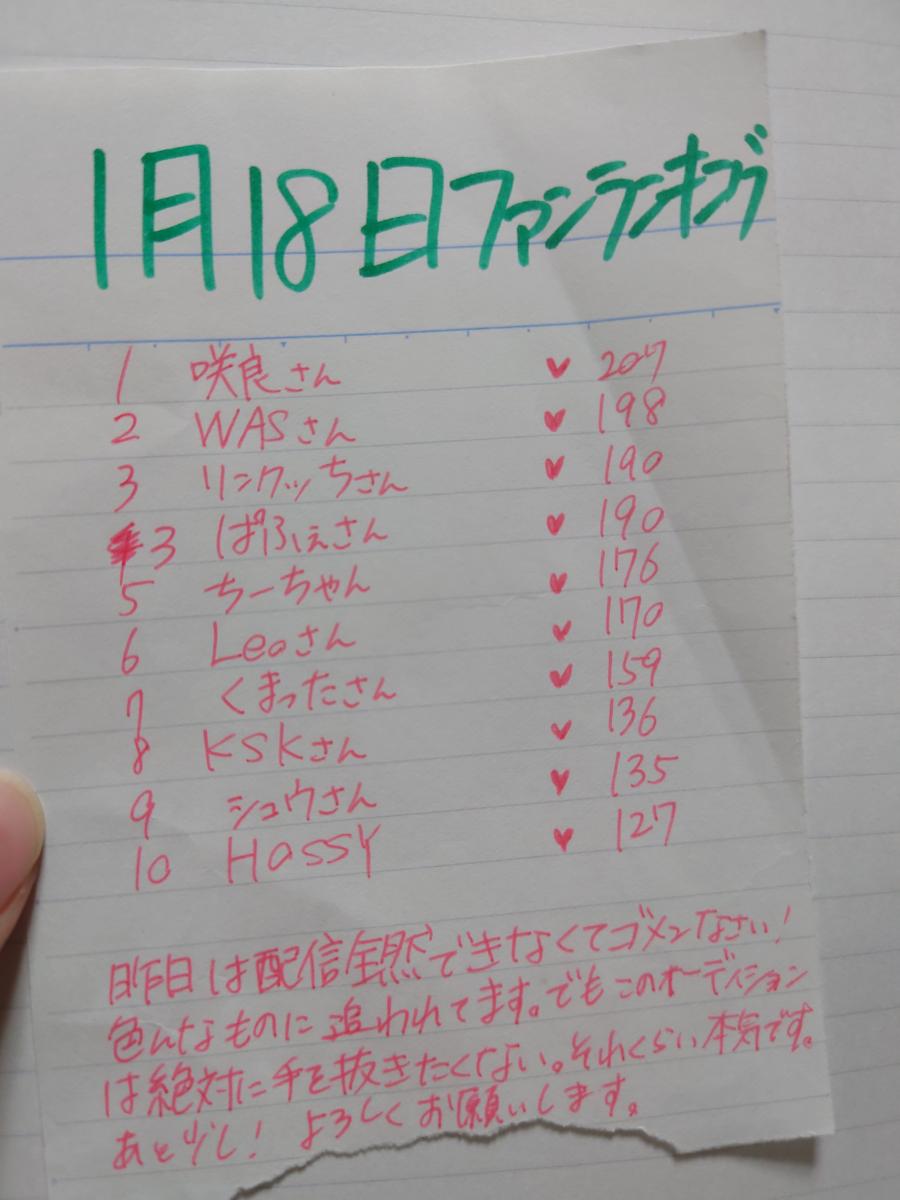 1月18日ファンランキング
1 咲良さん ♥ 207
2 WASさん ♥ 198
3 リンクッちさん ♥ 190
3 ぱふぇさん ♥ 190
5 ちーちゃん ♥ 176
6 Leoさん ♥ 170
7 くまったさん ♥ 159
8 KSKさん ♥ 136
9 シュウさん ♥ 135
10 HaSSY ♥ 127
昨日は配信全然できなくてゴメンなさい!
色んなものに追われてます。でもこのオーディション
は絶対に手を抜きたくない。それくらい本気です。
あと少し! よろしくお願いします。